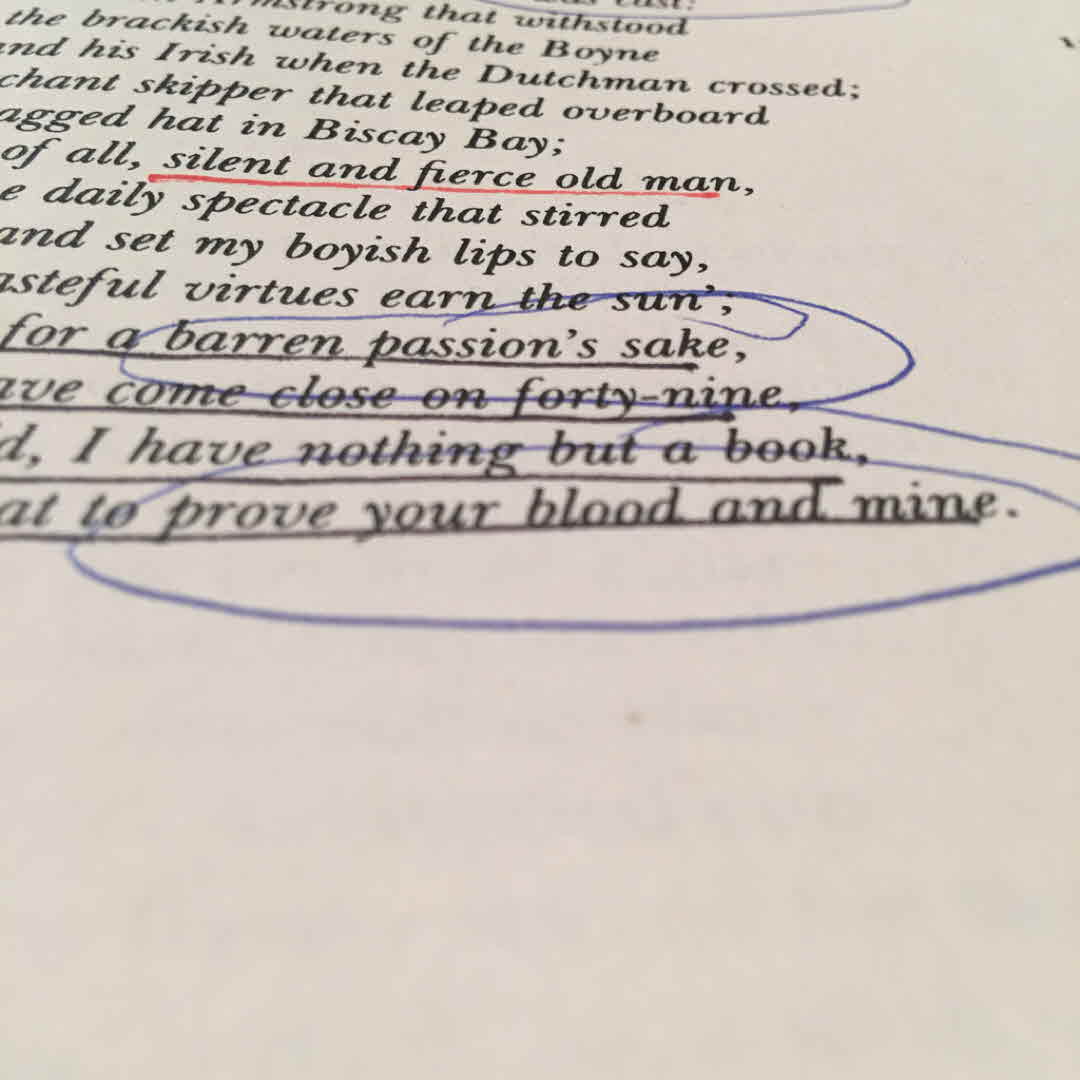 Armstrong that withstood
the brackish waters of the Boyne
and his Irish when the Dutchman crossed;
chant skipper that leaped overboard
agged hat in Biscay Bay;
of all, silent and fierce old man,
e daily spectacle that stirred
and set my boyish lips to say,
asteful virtues earn the sun';
for a barren passion's sake,
ave come close on forty-nine,
d, I have nothing but a book,
at to prove your blood and mine.